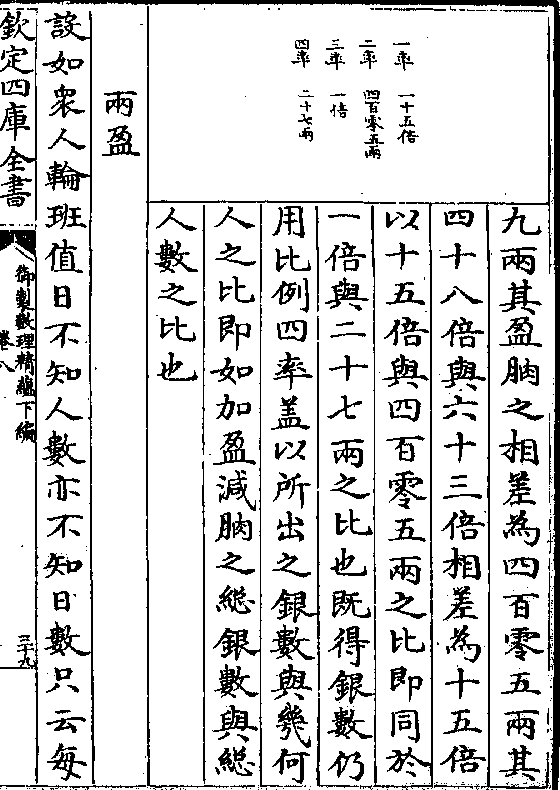 九兩其盈朒之相差為四百零五兩其
四十八倍與六十三倍相差為十五倍
以十五倍與四百零五兩之比即同於
一倍與二十七兩之比也既得銀數仍
用比例四率盖以所出之銀數與幾何
人之比即如加盈減朒之總銀數與總
人數之比也
一率 一十五倍
二率 四百零五兩
三率 一倍
四率 二十七兩
兩盈
設如衆人輪班值日不知人數亦不知日數只云每
欽定四庫全書
御製數理精蘊下編
卷八
三十九